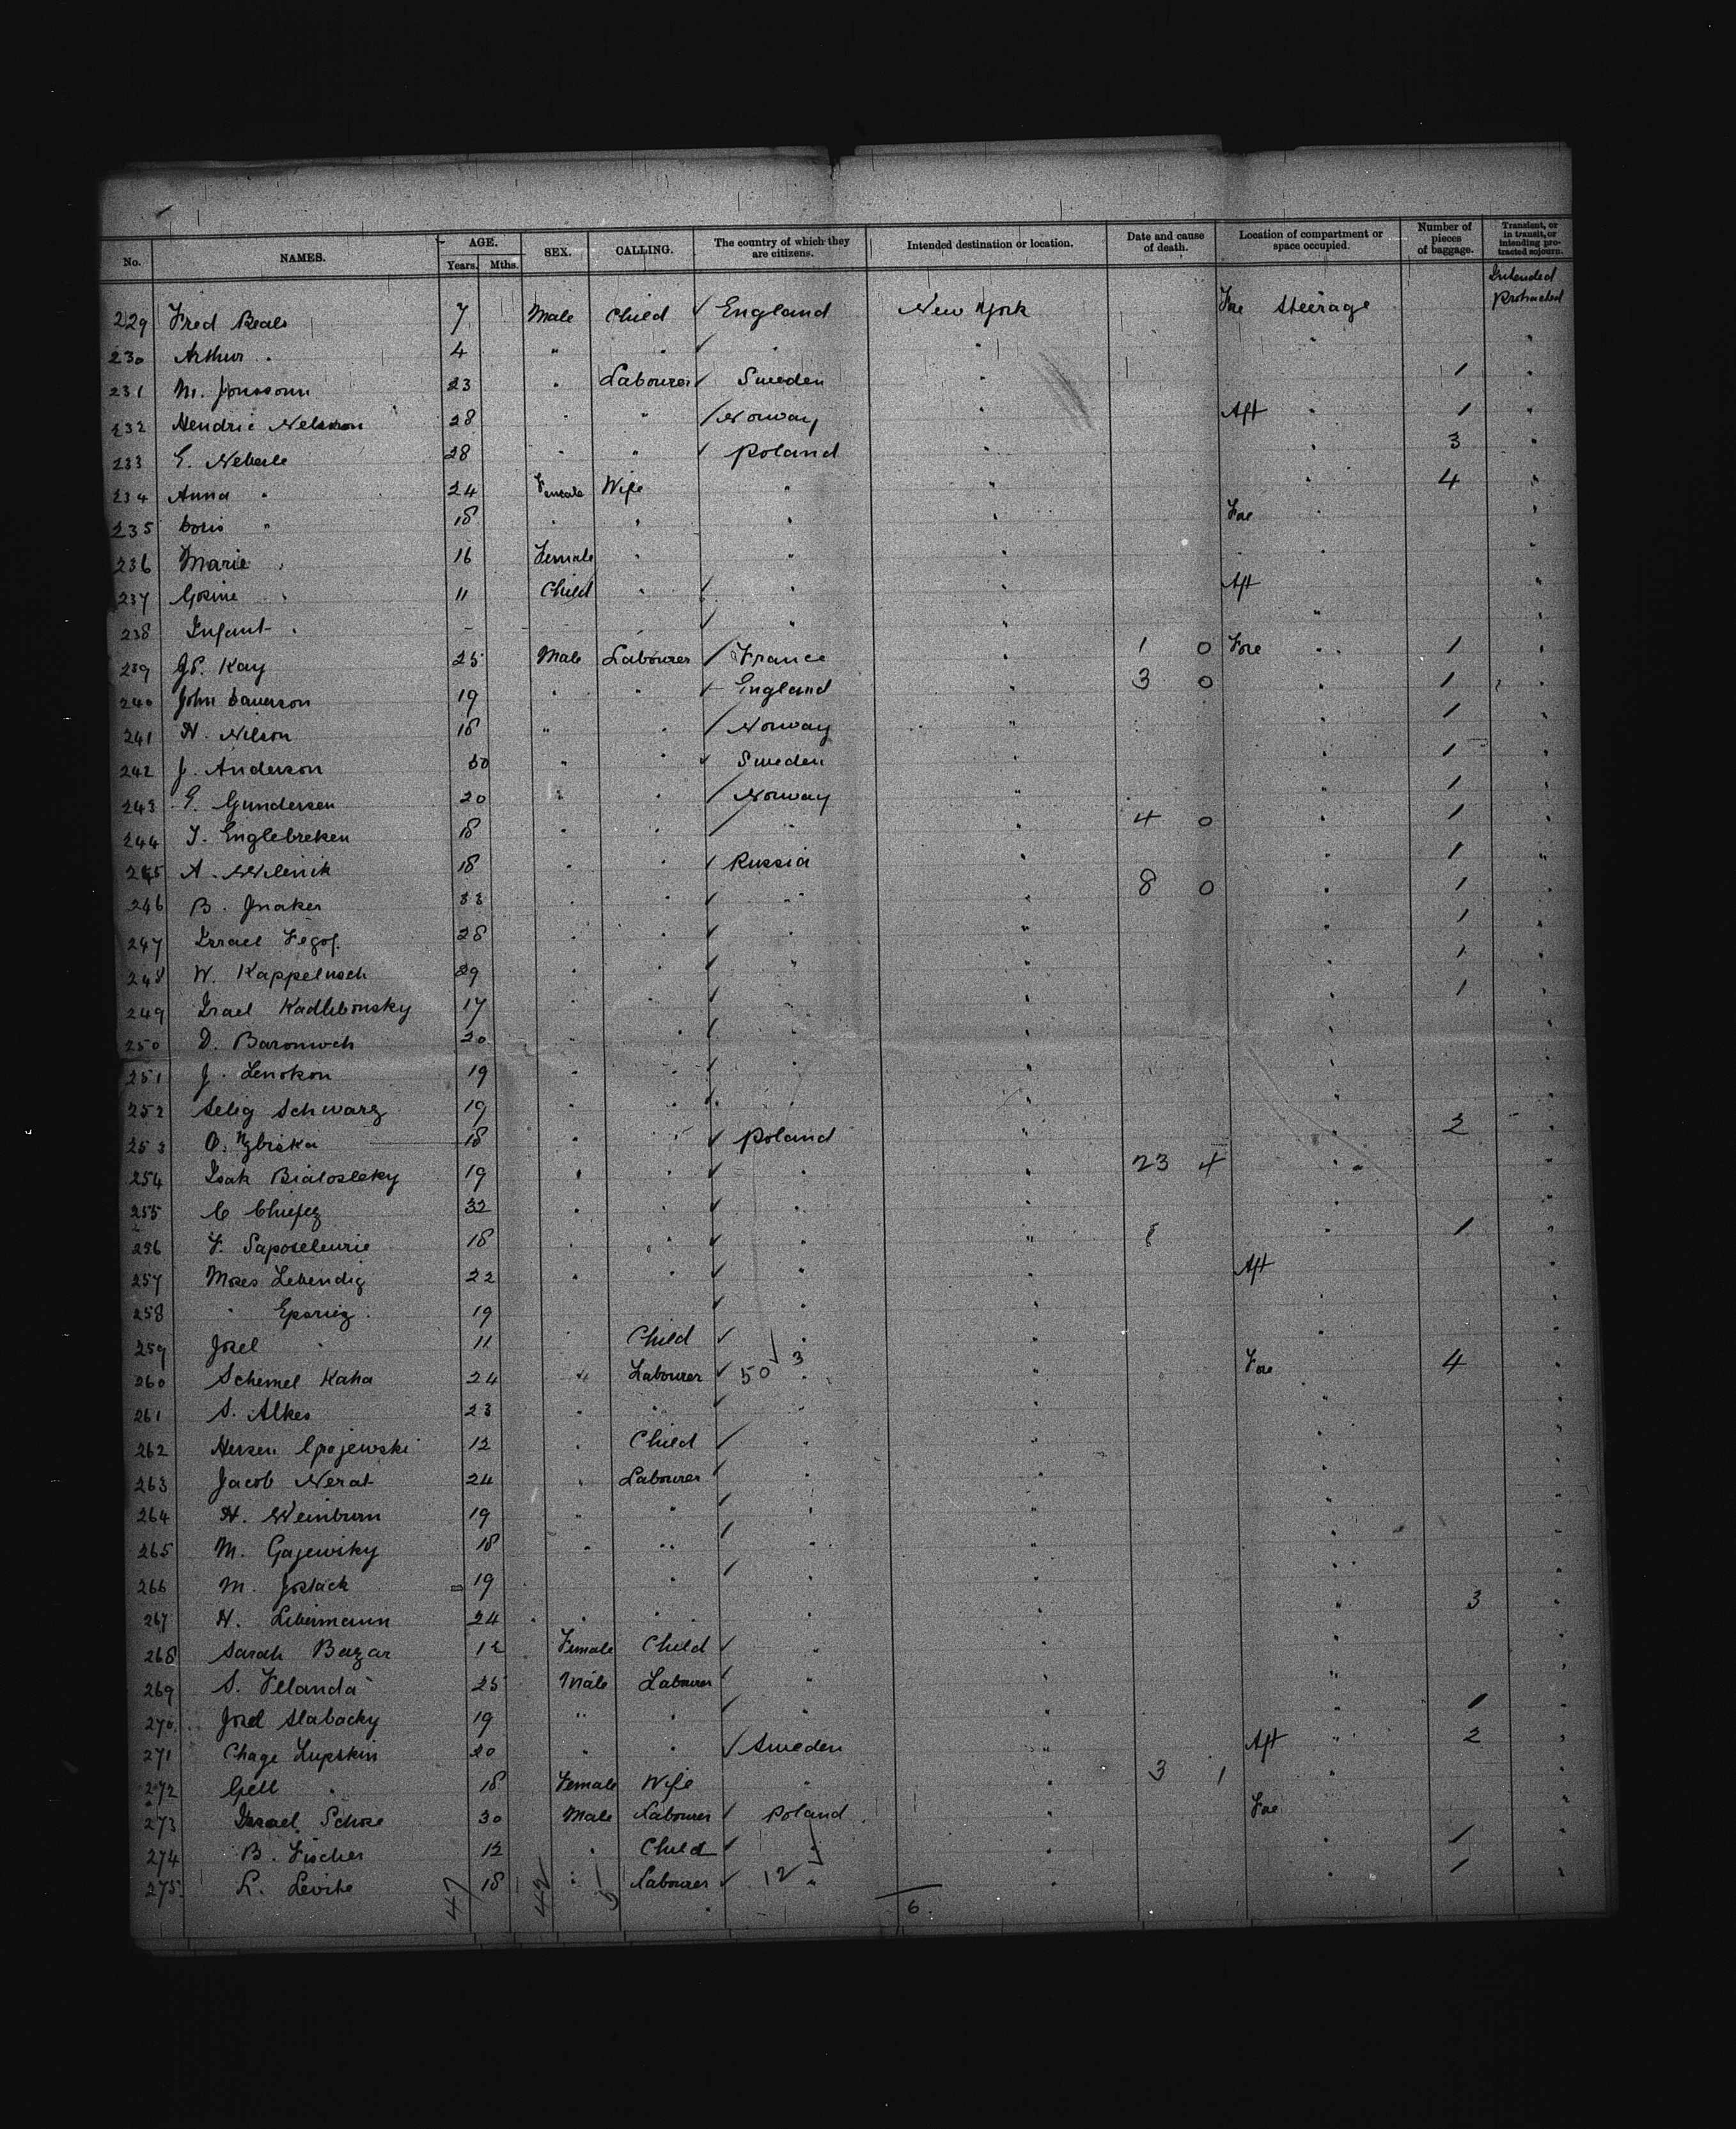 No. NAMES. AGE. Years. Mths. SEX. CALLING. The country of which they are citizens. Intended destination or location. Date and cause of death. Location of compartment or space occupied. Number of pieces of baggage. Transient, or in transit, or intending protracted sojourn.
Intended Protracted
229 Fred Beals 7 Male Child ✓ England New York Fore Steerage
230 Arthur " 4 " " ✓ " " " "
231 M. Jonssonn 23 " Labourer ✓ Sweden " 1 "
232 Hendric Nelsson 28 " " ✓ Norway " Aft " 1 "
233 E. Neberle 28 " " ✓ Poland " " 3 "
234 Anna " 24 Female Wife " " " 4 "
235 Doris " 18 " " " " Fore " "
236 Marie " 16 Female " " " " "
237 Gosine " 11 Child " ✓ " " Aft "
238 Infant " - - ✓ " " " "
239 Kay 25 Male Labourer ✓ France " 1 0 Fore " 1 "
240 John 19 " " ✓ England " 3 0 " 1 "
241 N. Nilson 18 " " ✓ Norway " " 1 "
242 J. Anderson 30 " " ✓ Sweden " 1 "
243 G. Gundersen 20 " " ✓ Norway " " 1 "
244 Englebreken 18 " " ✓ " " 4 0 " 1 "
245 A. Wilenik 18 " " ✓ Russia " " 1 "
246 B. Jnaker 33 " " ✓ " " 8 0 " 1 "
247 Israel Fegof 28 " " ✓ " " " 1 "
248 W. Kappelusch 29 " " ✓ " " " 1 "
249 Israel Kadlibonsky 17 " " ✓ " " " 1 "
250 D. Baronwch 20 " " ✓ " " " "
251 J. Lenokon 19 " " ✓ " " " "
252 Selig Schwarz 19 " " ✓ " " " "
253 18 " " ✓ Poland " " 2 "
254 Isak Bialosleky 19 " " ✓ " " 23 4 " "
255 32 " " ✓ " " " "
256 Saposelewrie 18 " " ✓ " " " 1 "
257 Moses Lebendig 22 " " ✓ " " Aft "
258 " 19 ✓ " " " "
259 Josel " 11 " Child ✓ " " " "
260 Schemel Kaha 24 " Labourer ✓ 50 3 " " Fore " 4 "
261 S. Alkes 23 " " ✓ " " " "
262 12 " Child ✓ " " " "
263 Jacob Nerat 24 " Labourer ✓ " " " "
264 N. Weinburn 19 " " ✓ " " " "
265 M. Gajewsky 18 " " ✓ " " " "
266 M. Jostack 19 " " ✓ " " " "
267 N. Libermann 24 " " " " " " 3 "
268 Sarah Bazar 12 Female Child ✓ " " " "
269 S. Felanda 25 Male Labourer ✓ " " " "
270 Josel Slabocky 19 " " ✓ " " " 1 "
271 Chage Lupskin 20 " " ✓ Sweden " Aft " 2 "
272 Gell " 18 Female Wife " " 3 1 " "
273 Israel Schoe 30 Male Labourer ✓ Poland " Fore "
274 B. Fischer 12 " Child ✓ " " " 1 "
275 L. Levite 18 " Labourer ✓ 12 " " " 1 "
47 42 5 6